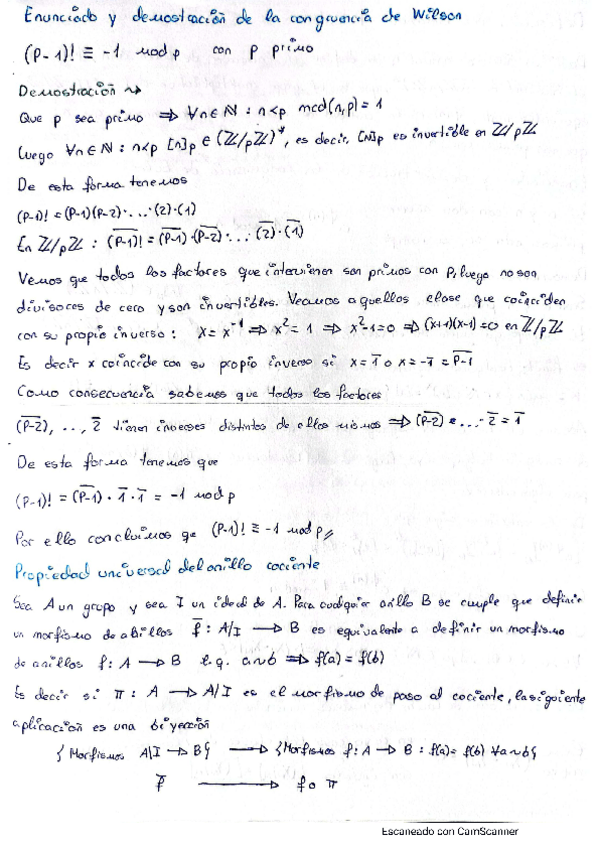 Enunciado y demostración de la congruencia de Wilson
(P-1)! ≡ -1 mod p con p primo
Demostración ↝
Que p sea primo ⇒ ∀n∈ℕ : n<p mcd(n,p) = 1
Luego ∀n∈ℕ : n<p [n]p ∈ (ℤ/pℤ)*, es decir, [n]p es invertible en ℤ/pℤ
De esta forma tenemos
(P-1)! = (P-1)(P-2)· ... ·(2)·(1)
En ℤ/pℤ : (P̅-̅1̅)! = (P̅-̅1̅)·(P̅-̅2̅)· ... ·(2̅)·(1̅)
Vemos que todos los factores que intervienen son primos con p, luego no son
divisores de cero y son invertibles. Veamos aquellos clase que coinciden
con su propio inverso : x = x⁻¹ ⇒ x² = 1 ⇒ x²-1=0 ⇒ (x+1)(x-1)=0 en ℤ/pℤ
Es decir x coincide con su propio inverso si x = 1̅ o x = -1̅ = P̅-̅1̅
Como consecuencia sabemos que todos los factores
(P̅-̅2̅), . . , 2̅ tienen inversos distintos de ellos mismos ⇒ (P̅-̅2̅) · ... · 2̅ = 1̅
De esta forma tenemos que
(P-1)! = (P̅-̅1̅) · 1̅ · 1̅ = -1 mod p
Por ello concluimos que (P-1)! ≡ -1 mod p //
Propiedad universal del anillo cociente
Sea A un grupo y sea I un ideal de A. Para cualquier anillo B se cumple que definir
un morfismo de anillos f̅ : A/I → B es equivalente a definir un morfismo
de anillos f : A → B t.q. a~b ⇒ f(a) = f(b)
Es decir si π : A → A/I es el morfismo de paso al cociente, la siguiente
aplicación es una biyección
{ Morfismos A/I → B } → { Morfismos f : A → B : f(a) = f(b) ∀a~b }
f̅ → f o π
Escaneado con CamScanner